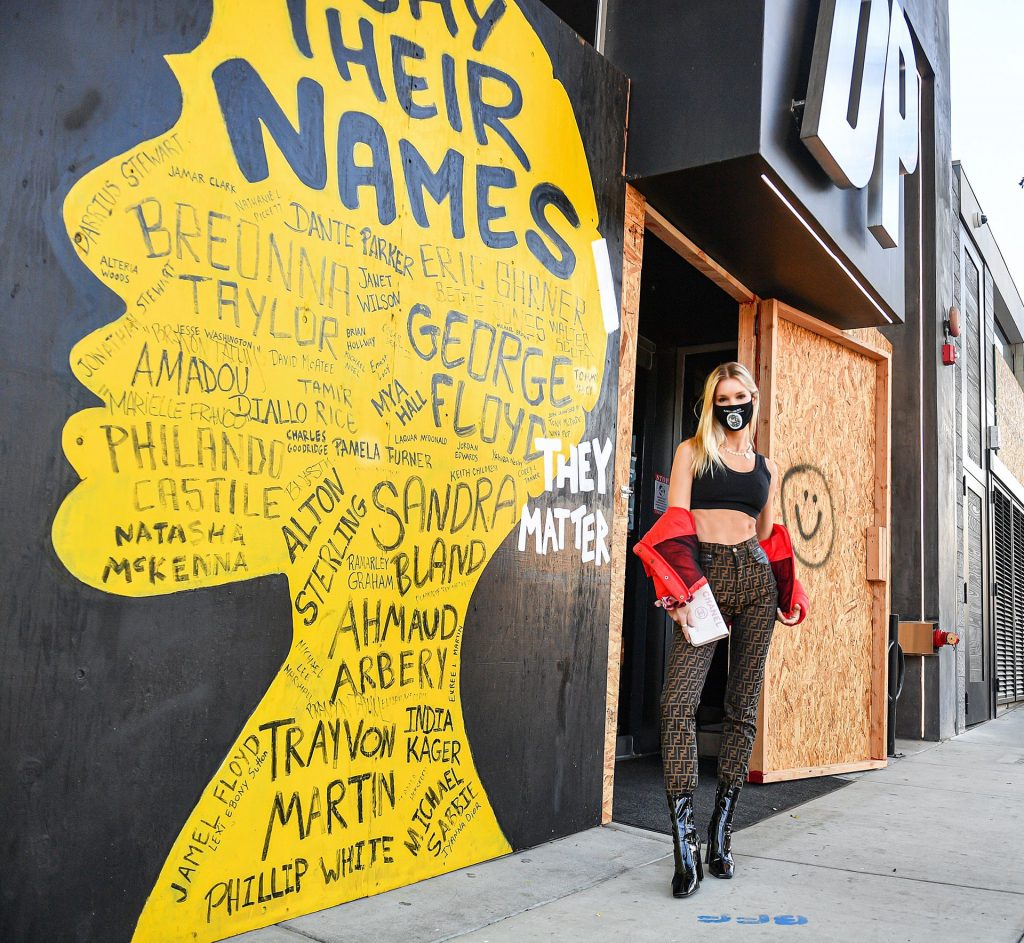 SAY
THEIR
NAMES
DARSIUS STEWART
JAMAR CLARK
NATHANIEL
PICKETT
DANTE PARKER
BREONNA
TAYLOR
ALTERIA
WOODS
JANET
WILSON
ERIC GARNER
BETTIE JONES
JONATHAN
STEWART
JESSE WASHINGTON
DAVID MCATEE
BRIAN
GEORGE
FLOYD
AMADOU
DIALLO
TAMIR
RICE
MYA
HALL
MARIELLE FRANCO
CHARLES
GOODRIDGE
PAMELA TURNER
LAQUAN MCDONALD
JORDAN
EDWARDS
KEITH CHILDRESS
PHILANDO
CASTILE
THEY
MATTER
NATASHA
MCKENNA
ALTON
STERLING
SANDRA
BLAND
RAMARLEY
GRAHAM
AHMAUD
ARBERY
MICHAEL
LEE
TRAYVON
MARTIN
INDIA
KAGER
JAMEL FLOYD
MICHAEL
SABBIE
IYANNA DIOR
PHILLIP WHITE
UP
CHANEL